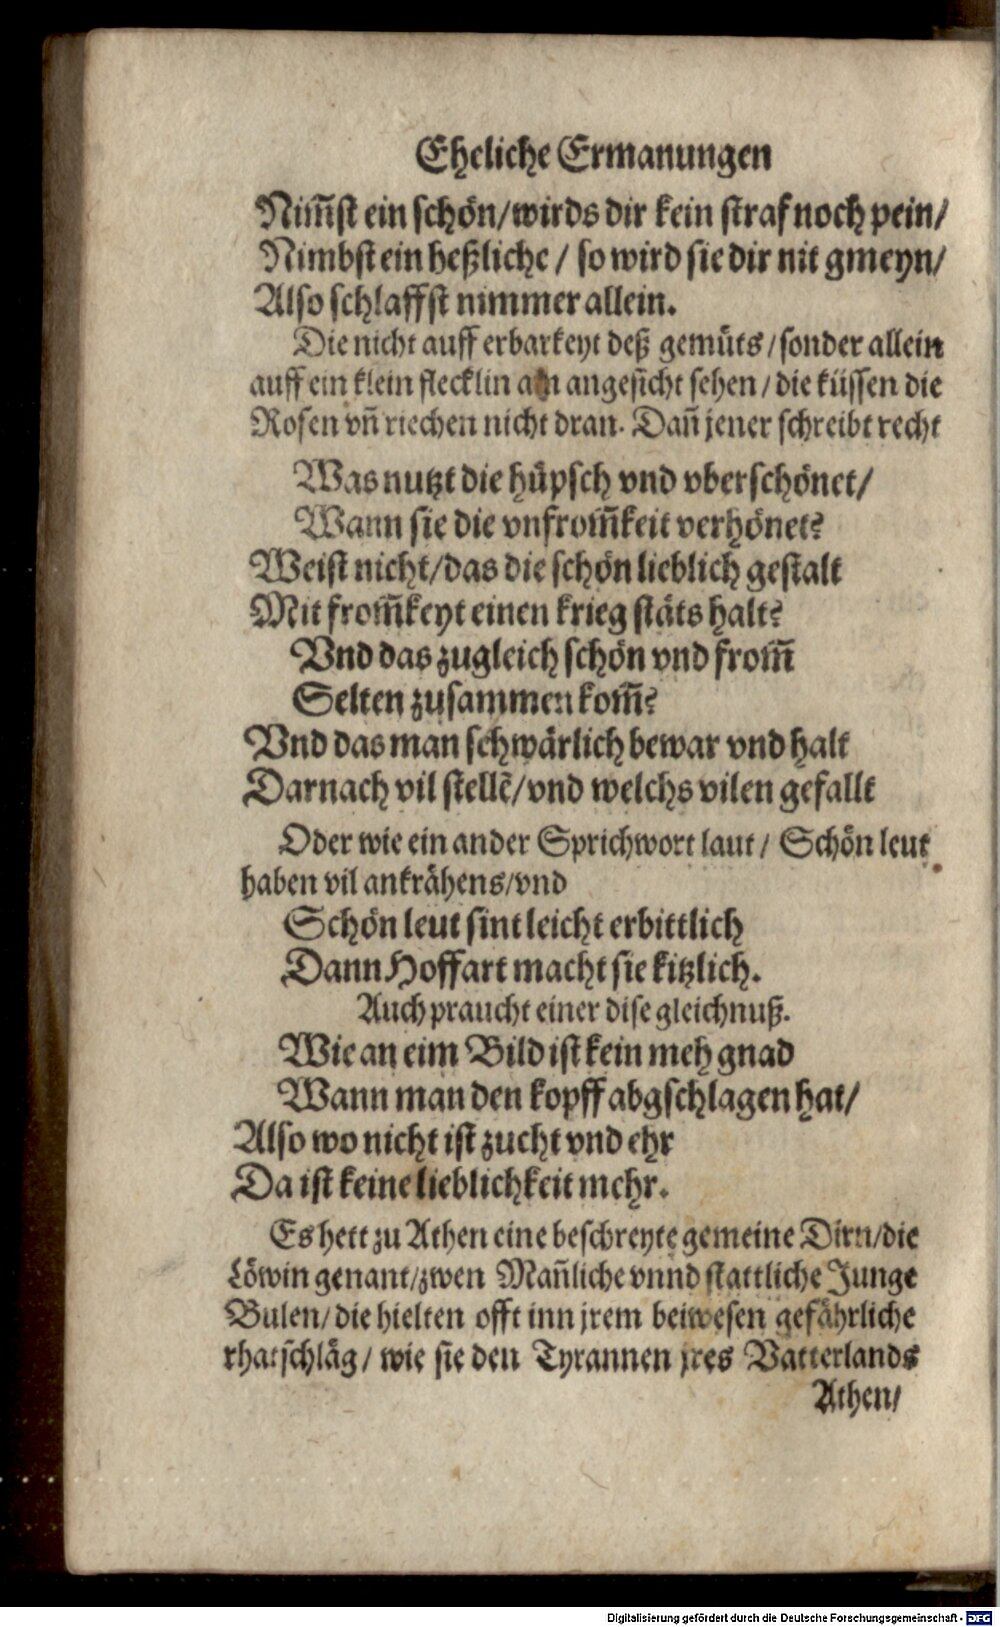 Eheliche Ermanungen
Nim̃st ein schön/wirds dir kein straf noch pein/
Nimbst ein heßliche / so wird sie dir nit gmeyn/
Also schlaffst nimmer allein.
Die nicht auff erbarkeyt deß gemüts/sonder allein
auff ein klein flecklin am angesicht sehen/die küssen die
Rosen vñ riechen nicht dran. Dañ jener schreibt recht
Was nutzt die hüpsch vnd vberschönet/
Wann sie die vnfrom̃keit verhönet?
Weist nicht/das die schön lieblich gestalt
Mit from̃keyt einen krieg stäts halt?
Vnd das zugleich schön vnd from̃
Selten zusammen kom̃?
Vnd das man schwärlich bewar vnd halt
Darnach vil stellẽ/vnd welchs vilen gefallt
Oder wie ein ander Sprichwort laut/ Schön leut
haben vil ankrähens/vnd
Schön leut sint leicht erbittlich
Dann Hoffart macht sie kitzlich.
Auch praucht einer dise gleichnuß.
Wie an eim Bild ist kein meh gnad
Wann man den kopff abgschlagen hat/
Also wo nicht ist zucht vnd ehr
Da ist keine lieblichkeit mehr.
Es hett zu Athen eine beschreyte gemeine Dirn/die
Löwin genant/zwen Mañliche vnnd stattliche Junge
Bulen/die hielten offt inn jrem beiwesen gefährliche
rhatschläg/ wie sie den Tyrannen jres Vatterlands
Athen/
Digitalisierung gefördert durch die Deutsche Forschungsgemeinschaft - DFG